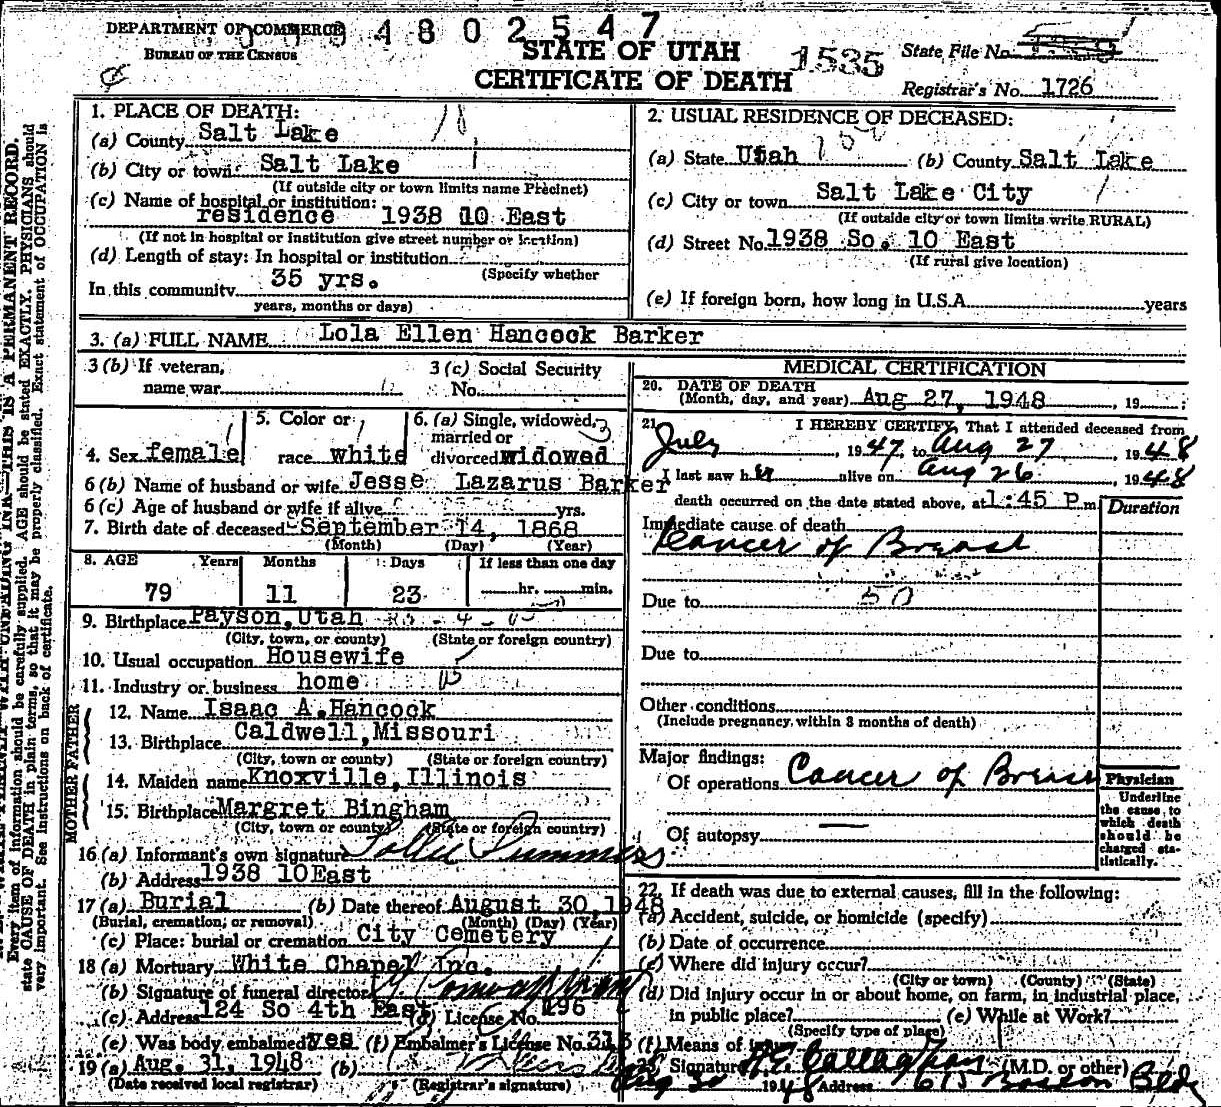 DEPARTMENT OF COMMERCE
BUREAU OF THE CENSUS
4802547
STATE OF UTAH
CERTIFICATE OF DEATH
1535
State File No.
Registrar's No. 1726
1. PLACE OF DEATH:
(a) County Salt Lake
(b) City or town Salt Lake
(If outside city or town limits name Precinct)
(c) Name of hospital or institution:
residence 1938 10 East
(If not in hospital or institution give street number or location)
(d) Length of stay: In hospital or institution
(Specify whether
In this community 35 yrs.
years, months or days)
2. USUAL RESIDENCE OF DECEASED:
(a) State Utah (b) County Salt Lake
(c) City or town Salt Lake City
(If outside city or town limits write RURAL)
(d) Street No. 1938 So. 10 East
(If rural give location)
(e) If foreign born, how long in U.S.A. years
3. (a) FULL NAME Lola Ellen Hancock Barker
3 (b) If veteran,
name war
3 (c) Social Security
No.
4. Sex female
5. Color or
race white
6. (a) Single, widowed,
married or
divorced widowed
6 (b) Name of husband or wife Jesse Lazarus Barker
6 (c) Age of husband or wife if alive yrs.
7. Birth date of deceased September 14, 1868
(Month) (Day) (Year)
8. AGE Years Months Days If less than one day
79 11 23 hr. min.
9. Birthplace Payson, Utah
(City, town, or county) (State or foreign country)
10. Usual occupation Housewife
11. Industry or business home
FATHER
12. Name Isaac A. Hancock
13. Birthplace Caldwell, Missouri
(City, town or county) (State or foreign country)
MOTHER
14. Maiden name Knoxville, Illinois
15. Birthplace Margret Bingham
(City, town or county) (State or foreign country)
16 (a) Informant's own signature
(b) Address 1938 10East
17 (a) Burial (b) Date thereof August 30, 1948
(Burial, cremation, or removal) (Month) (Day) (Year)
(c) Place: burial or cremation City Cemetery
18 (a) Mortuary White Chapel Inc.
(b) Signature of funeral director
(c) Address 124 So 4th East (d) License No. 196
(e) Was body embalmed? yes (f) Embalmer's License No. 313
19 (a) Aug. 31, 1948 (b)
(Date received local registrar) (Registrar's signature)
MEDICAL CERTIFICATION
20. DATE OF DEATH
(Month, day, and year) Aug 27, 1948, 19
21. I HEREBY CERTIFY, That I attended deceased from
July, 1947, to Aug 27, 1948
I last saw her alive on Aug 26, 1948
death occurred on the date stated above, at 1:45 P m
Duration
Immediate cause of death
Cancer of Breast
50
Due to
Due to
Other conditions
(Include pregnancy within 3 months of death)
Major findings:
Of operations Cancer of Breast
Of autopsy —
Physician
Underline
the cause to
which death
should be
charged sta-
tistically.
22. If death was due to external causes, fill in the following:
(a) Accident, suicide, or homicide (specify)
(b) Date of occurrence
(c) Where did injury occur?
(City or town) (County) (State)
(d) Did injury occur in or about home, on farm, in industrial place,
in public place? (e) While at Work?
(Specify type of place)
(f) Means of injury
23. Signature (M.D. or other)
Aug 30 1948 Address 615 Boston Bldg
Every item of information should be carefully supplied. AGE should be stated EXACTLY. PHYSICIANS should
state CAUSE OF DEATH in plain terms, so that it may be properly classified. Exact statement of OCCUPATION is
very important. See instructions on back of certificate.